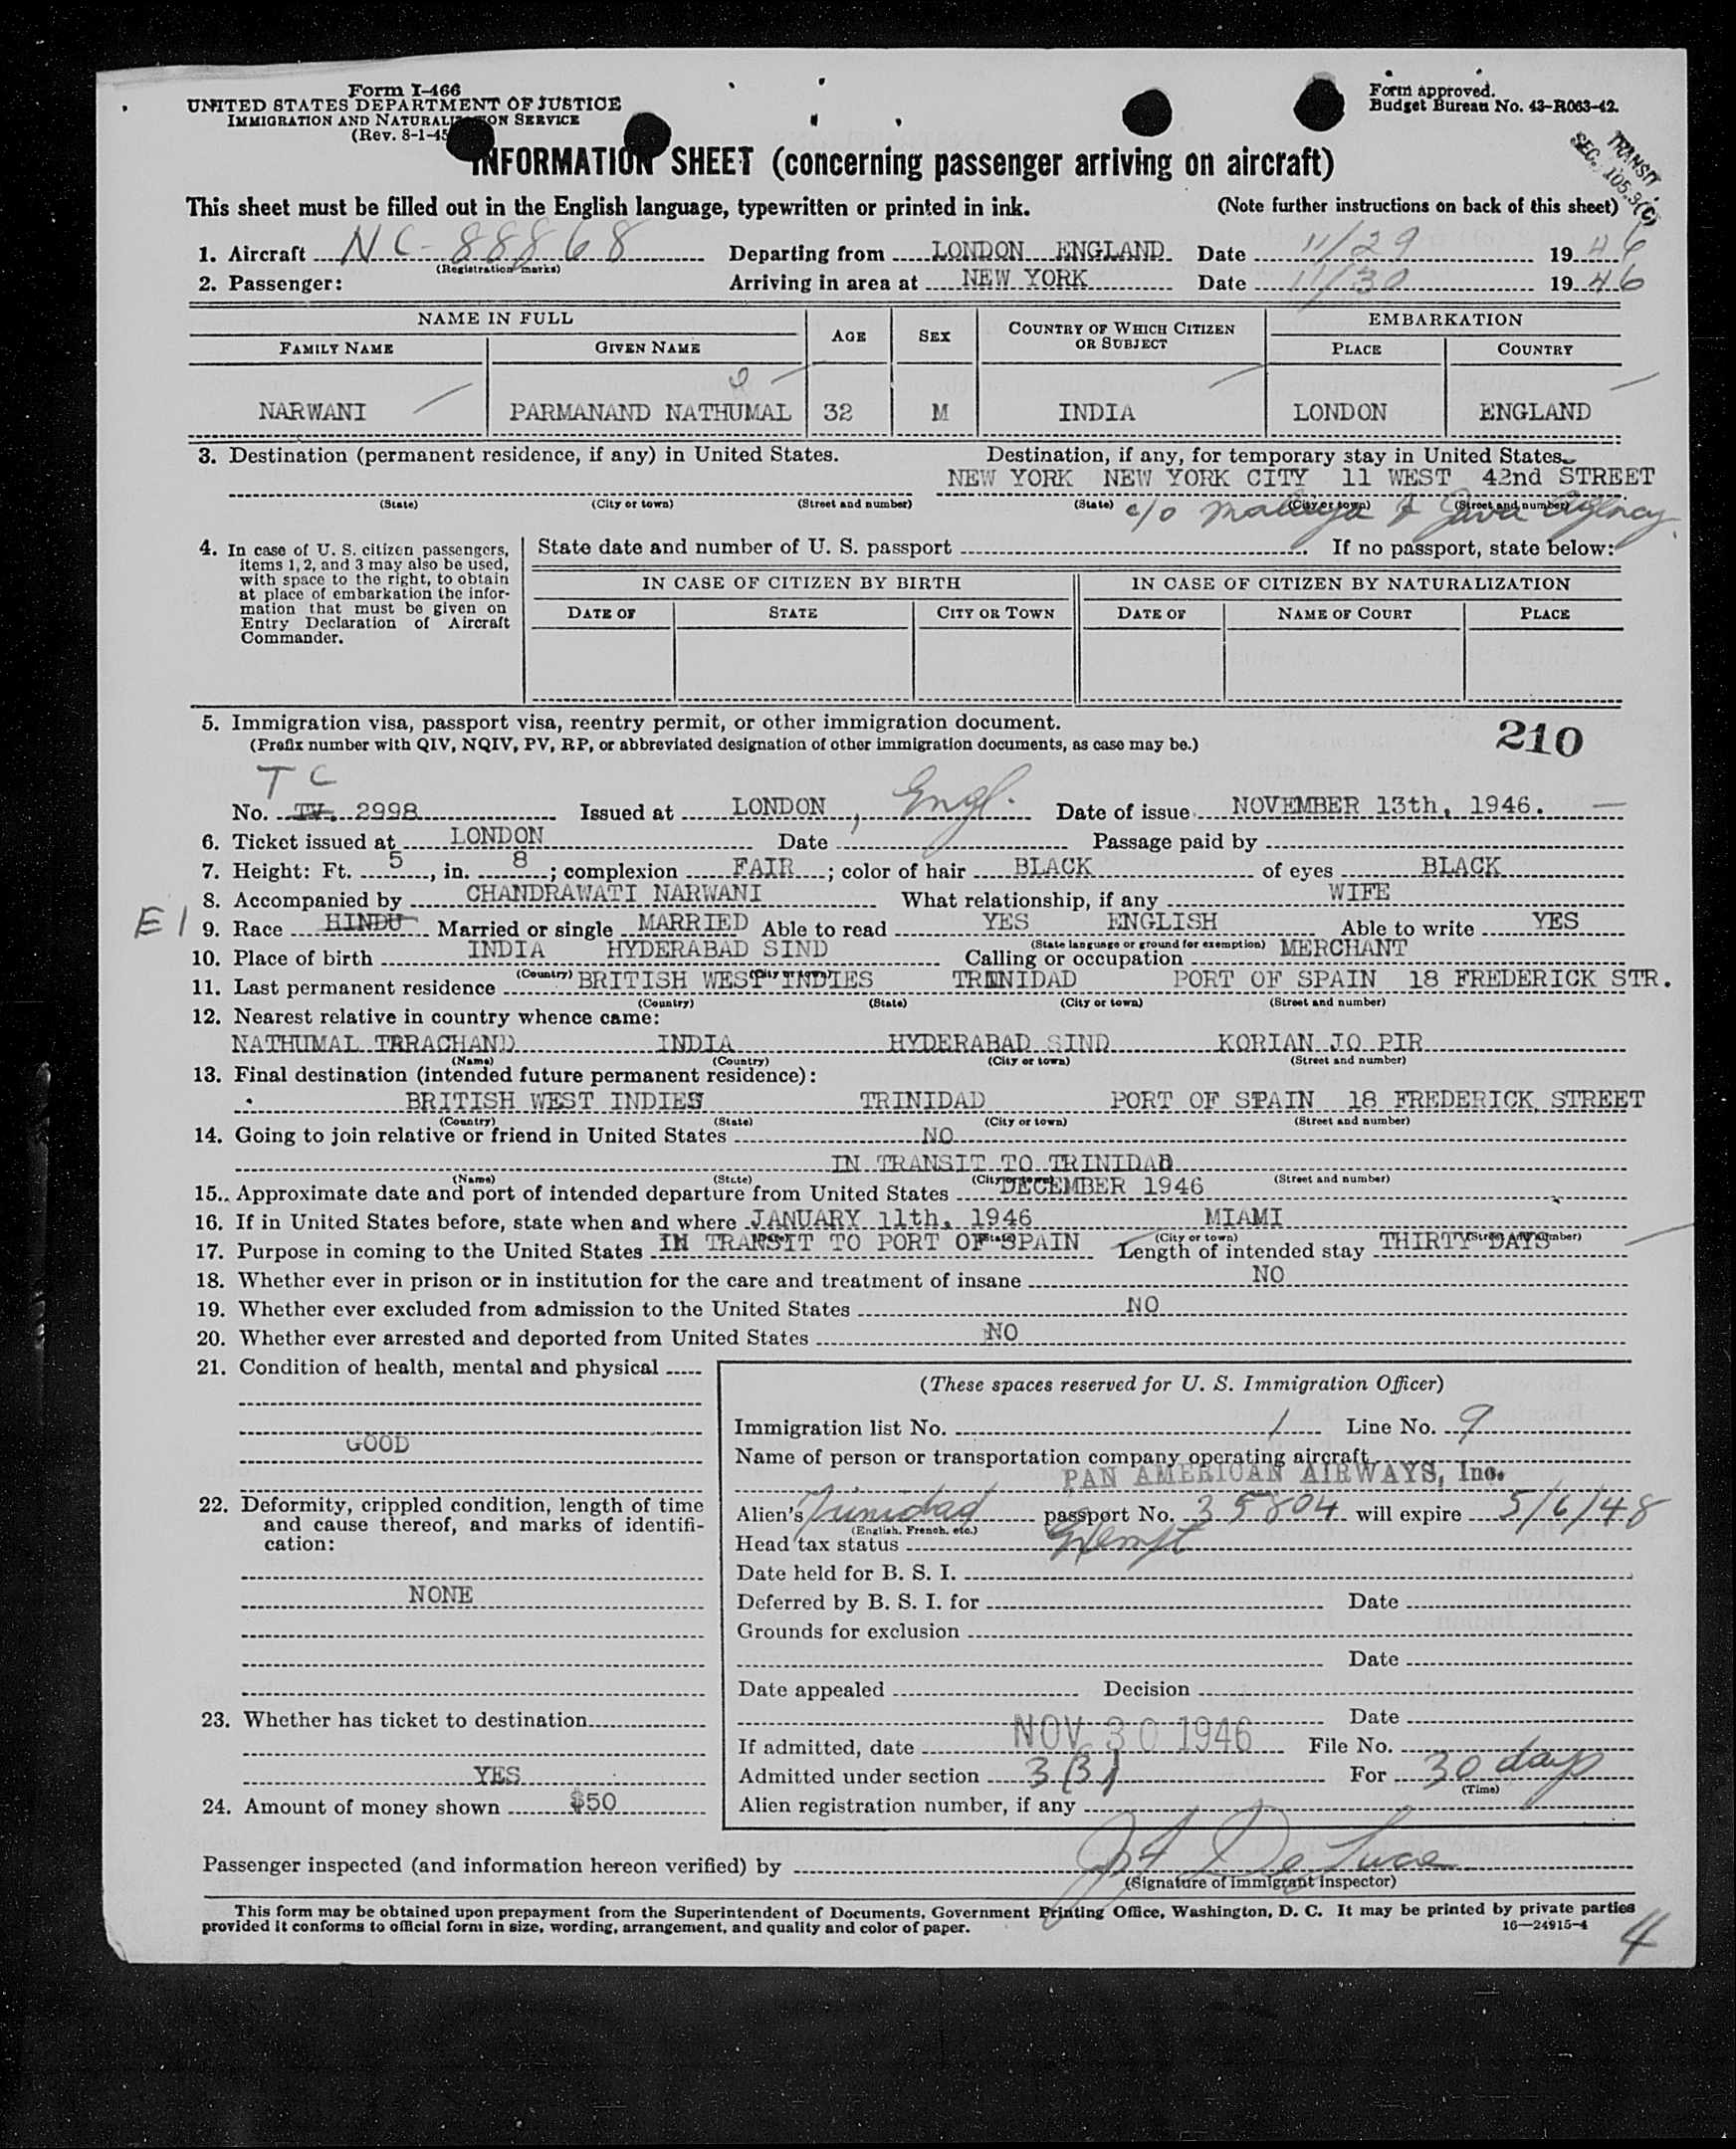 Form I-466
UNITED STATES DEPARTMENT OF JUSTICE
IMMIGRATION AND NATURALIZATION SERVICE
(Rev. 8-1-45
Form approved.
Budget Bureau No. 43-R063-42.
TRANSIT
SEC. 105.3(C)
INFORMATION SHEET (concerning passenger arriving on aircraft)
This sheet must be filled out in the English language, typewritten or printed in ink. (Note further instructions on back of this sheet)
1. Aircraft NC-88868 Departing from LONDON ENGLAND Date 11/29 1946
(Registration marks)
2. Passenger: Arriving in area at NEW YORK Date 11/30 1946
NAME IN FULL AGE SEX COUNTRY OF WHICH CITIZEN OR SUBJECT EMBARKATION
FAMILY NAME GIVEN NAME PLACE COUNTRY
NARWANI PARMANAND NATHUMAL 32 M INDIA LONDON ENGLAND
3. Destination (permanent residence, if any) in United States. Destination, if any, for temporary stay in United States.
NEW YORK NEW YORK CITY 11 WEST 42nd STREET
(State) (City or town) (Street and number) (State) (City or town) (Street and number)
c/o Malaya & Java Agency
4. In case of U. S. citizen passengers, items 1, 2, and 3 may also be used, with space to the right, to obtain at place of embarkation the information that must be given on Entry Declaration of Aircraft Commander.
State date and number of U. S. passport . If no passport, state below:
IN CASE OF CITIZEN BY BIRTH IN CASE OF CITIZEN BY NATURALIZATION
DATE OF STATE CITY OR TOWN DATE OF NAME OF COURT PLACE
5. Immigration visa, passport visa, reentry permit, or other immigration document.
(Prefix number with QIV, NQIV, PV, RP, or abbreviated designation of other immigration documents, as case may be.)
210
TC
No. TV. 2998 Issued at LONDON, Engl. Date of issue NOVEMBER 13th, 1946.
6. Ticket issued at LONDON Date Passage paid by
7. Height: Ft. 5, in. 8; complexion FAIR; color of hair BLACK of eyes BLACK
8. Accompanied by CHANDRAWATI NARWANI What relationship, if any WIFE
E I 9. Race HINDU Married or single MARRIED Able to read YES ENGLISH Able to write YES
(State language or ground for exemption)
10. Place of birth INDIA HYDERABAD SIND Calling or occupation MERCHANT
(Country) (City or town)
11. Last permanent residence BRITISH WEST INDIES TRINIDAD PORT OF SPAIN 18 FREDERICK STR.
(Country) (State) (City or town) (Street and number)
12. Nearest relative in country whence came:
NATHUMAL TARACHAND INDIA HYDERABAD SIND KORIAN JO PIR
(Name) (Country) (City or town) (Street and number)
13. Final destination (intended future permanent residence):
BRITISH WEST INDIES TRINIDAD PORT OF SPAIN 18 FREDERICK STREET
(Country) (State) (City or town) (Street and number)
14. Going to join relative or friend in United States NO
IN TRANSIT TO TRINIDAD
(Name) (State) (City or town) (Street and number)
15. Approximate date and port of intended departure from United States DECEMBER 1946
16. If in United States before, state when and where JANUARY 11th, 1946 MIAMI
(Date) (State) (City or town) (Street and number)
17. Purpose in coming to the United States IN TRANSIT TO PORT OF SPAIN Length of intended stay THIRTY DAYS
18. Whether ever in prison or in institution for the care and treatment of insane NO
19. Whether ever excluded from admission to the United States NO
20. Whether ever arrested and deported from United States NO
21. Condition of health, mental and physical
GOOD
22. Deformity, crippled condition, length of time and cause thereof, and marks of identification:
NONE
23. Whether has ticket to destination
YES
24. Amount of money shown $50
(These spaces reserved for U. S. Immigration Officer)
Immigration list No. 1 Line No. 9
Name of person or transportation company operating aircraft
PAN AMERICAN AIRWAYS, Inc.
Alien's Trinidad passport No. 35804 will expire 5/6/48
(English, French, etc.)
Head tax status Exempt
Date held for B. S. I.
Deferred by B. S. I. for Date
Grounds for exclusion
Date
Date appealed Decision
Date
If admitted, date NOV 30 1946 File No.
Admitted under section 3(3) For 30 days
(Time)
Alien registration number, if any
Passenger inspected (and information hereon verified) by De Luca
(Signature of immigrant inspector)
This form may be obtained upon prepayment from the Superintendent of Documents, Government Printing Office, Washington, D. C. It may be printed by private parties
provided it conforms to official form in size, wording, arrangement, and quality and color of paper. 16—24915-4
4